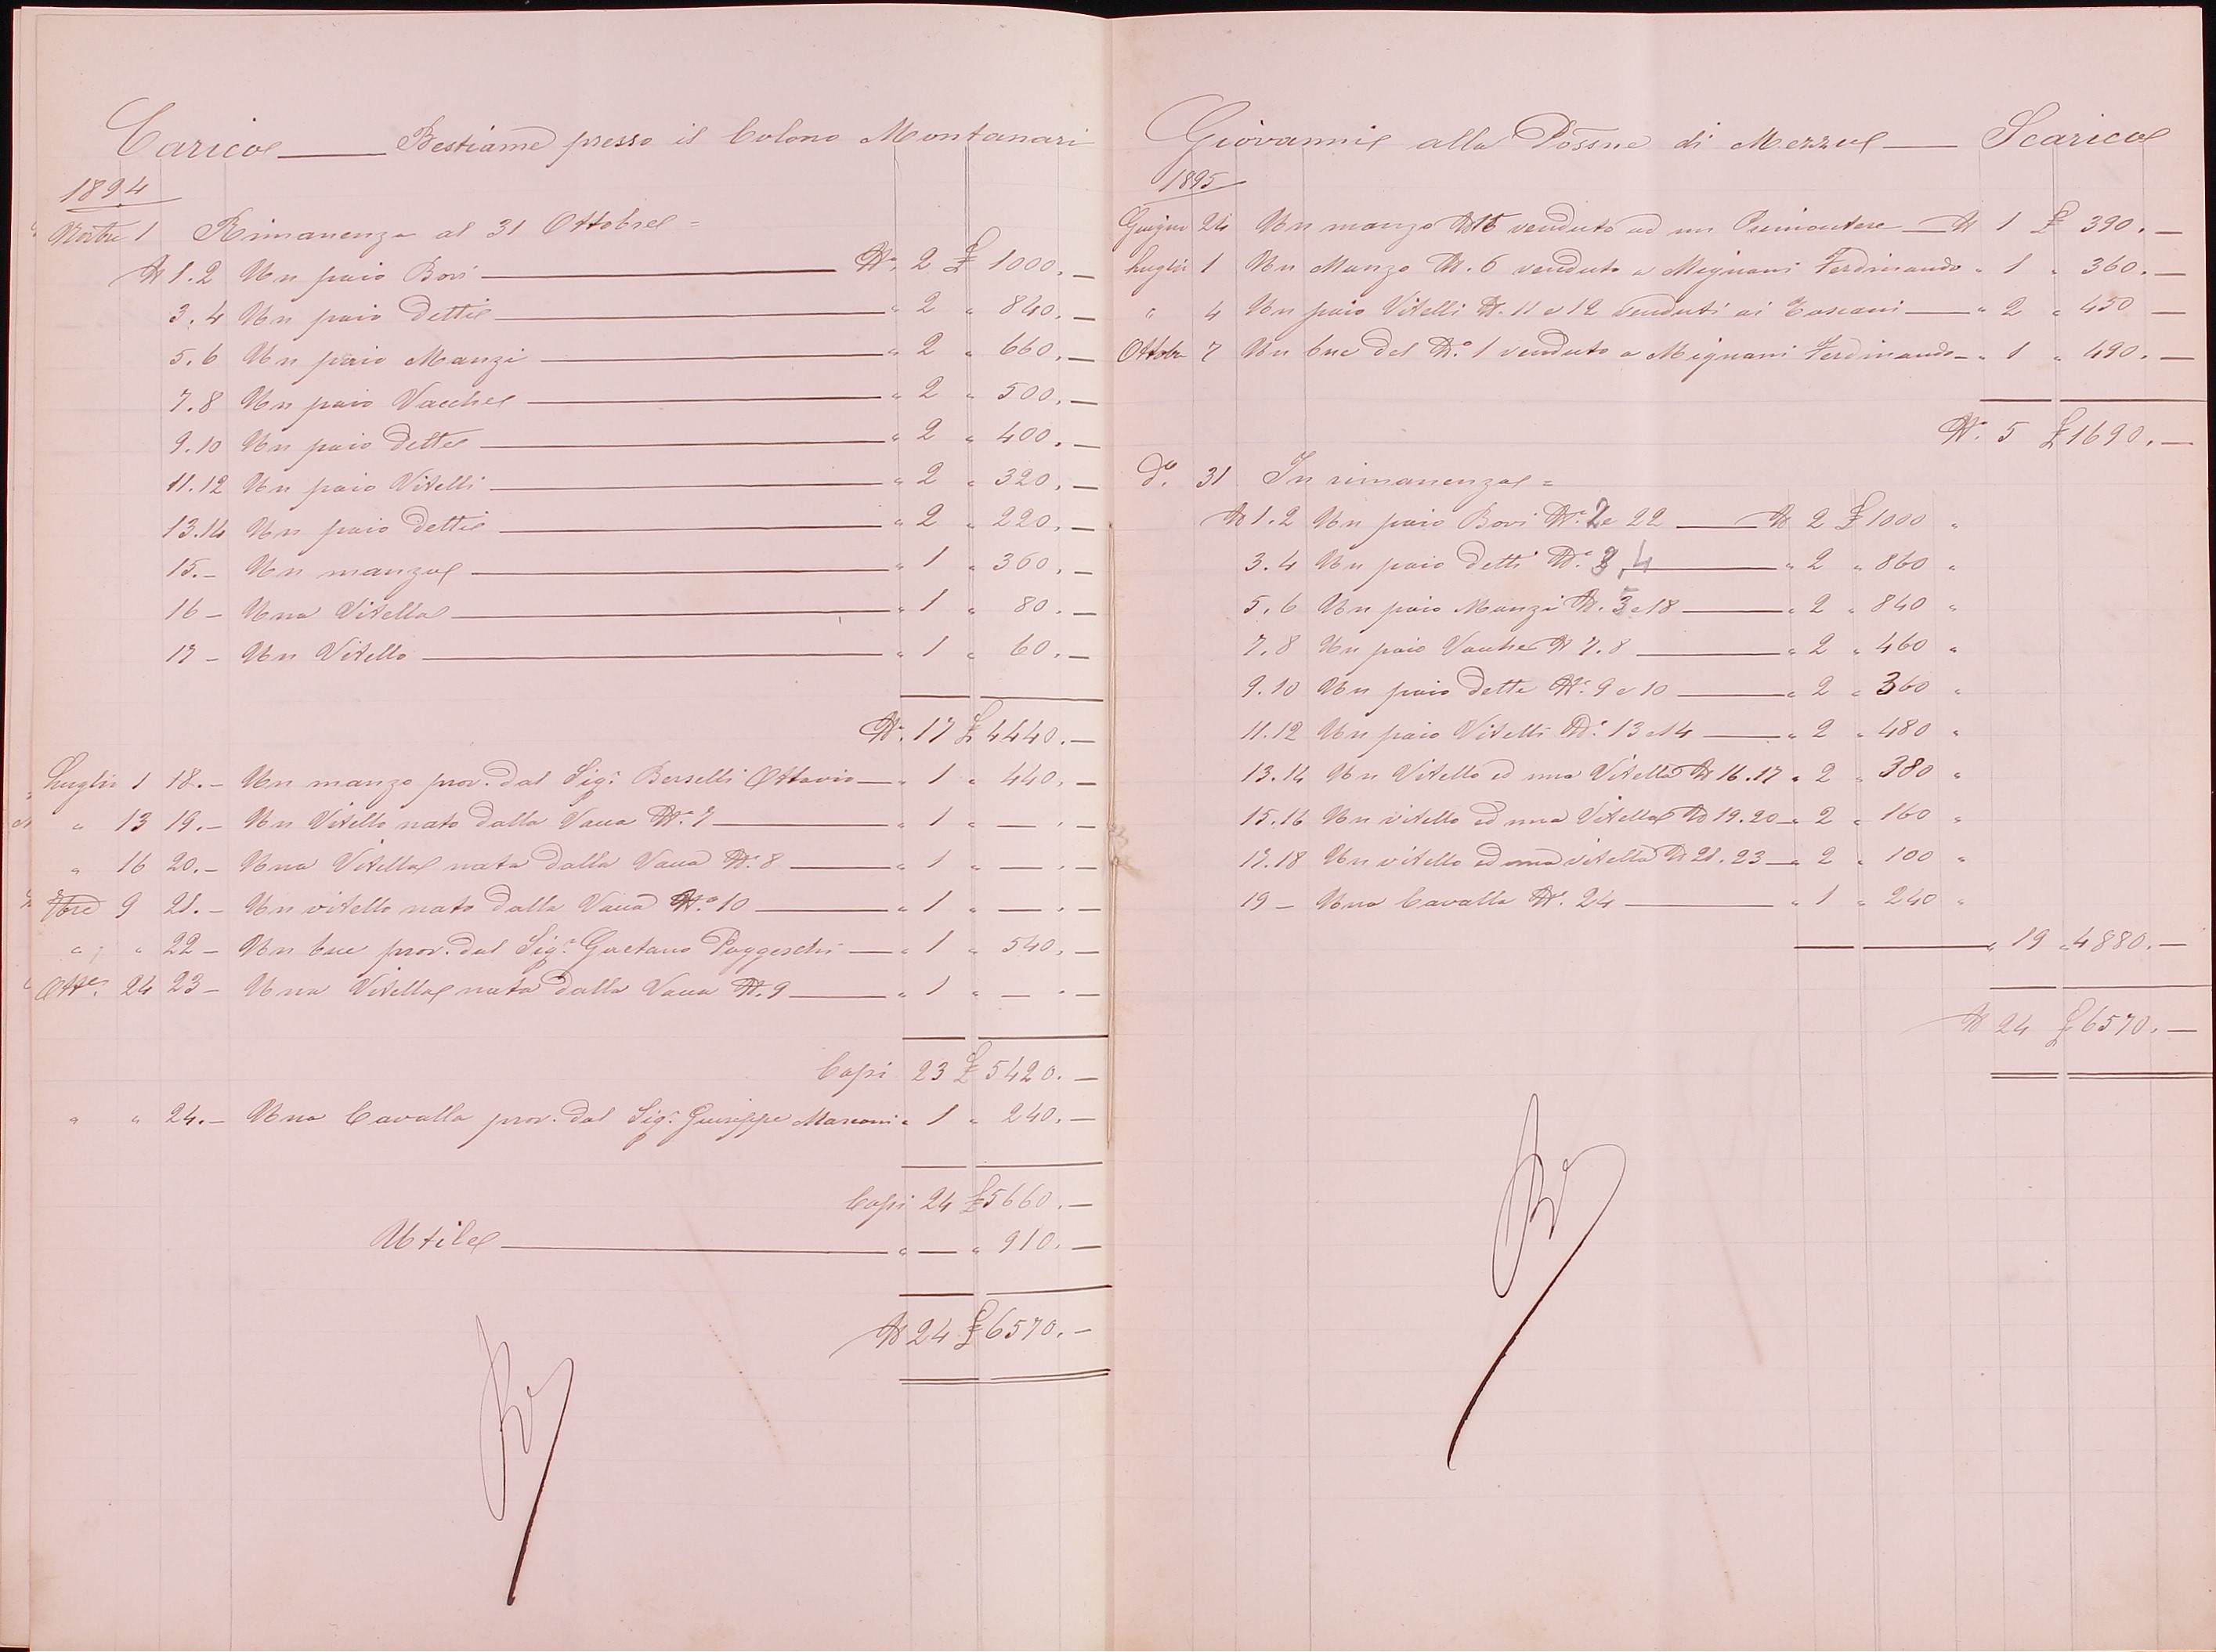 Carico — Bestiame presso il Colono Montanari
1894
Novbre 1 Rimanenza al 31 Ottobre =
N 1.2 Un paio Bovi — N° 2 £ 1000. —
3.4 Un paio detti — " 2 " 840. —
5.6 Un paio Manzi — " 2 " 660. —
7.8 Un paio Vacche — " 2 " 500. —
9.10 Un paio dette — " 2 " 400. —
11.12 Un paio Vitelli — " 2 " 320. —
13.14 Un paio detti — " 2 " 220. —
15. – Un manzo — " 1 " 360. —
16 – Una Vitella — " 1 " 80. —
17 – Un Vitello — " 1 " 60. —
N°. 17 £ 4440. —
Luglio 1 18. – Un manzo prov. dal Sigr. Berselli Ottavio — " 1 " 440. —
" 13 19. – Un Vitello nato dalla Vacca N° 7 — " 1 " — . —
" 16 20. – Una Vitella nata dalla Vacca N° 8 — " 1 " — . —
7bre 9 21. – Un vitello nato dalla Vacca N° 10 — " 1 " — . —
" " 22 – Un bue prov. dal Sigr. Gaetano Poggeschi — " 1 " 540. —
Otte. 24 23 – Una Vitella nata dalla Vacca N. 9 — " 1 " — . —
Capi 23 £ 5420. —
" " 24. – Una Cavalla prov. dal Sigr. Giuseppe Marconi " 1 " 240. —
Capi 24 £ 5660. —
Utile — " — " 910. —
N 24 £ 6570. —
Giovanni alla Possne di Mezzo — Scarico
1895
Giugno 24 Un manzo N 15 venduto ad un Piemontese — N 1 £ 390. —
Luglio 1 Un Manzo N. 6 venduto a Mignani Ferdinando " 1 " 360. —
" 4 Un paio Vitelli N. 11 e 12 venduti ai Toscani — " 2 " 450 —
Ottobr 7 Un bue del N° 1 venduto a Mignani Ferdinando — " 1 " 490. —
N°. 5 £ 1690. —
d°. 31 In rimanenza =
N 1.2 Un paio Bovi N° 2 e 22 — N 2 £ 1000 "
3.4 Un paio detti N° 3.4 — " 2 " 860 "
5.6 Un paio Manzi N. 5 e 18 — " 2 " 840 "
7.8 Un paio Vacche N 7.8 — " 2 " 460 "
9.10 Un paio dette N° 9 e 10 — " 2 " 360 "
11.12 Un paio Vitelli N° 13 e 14 — " 2 " 480 "
13.14 Un Vitello ed una Vitella N 16.17 " 2 " 380 "
15.16 Un vitello ed una Vitella N 19.20 — " 2 " 160 "
17.18 Un vitello ed una vitella N 21. 23 — " 2 " 100 "
19 – Una Cavalla N°. 24 — " 1 " 240 "
" 19 " 4880. —
N 24 £ 6570. —